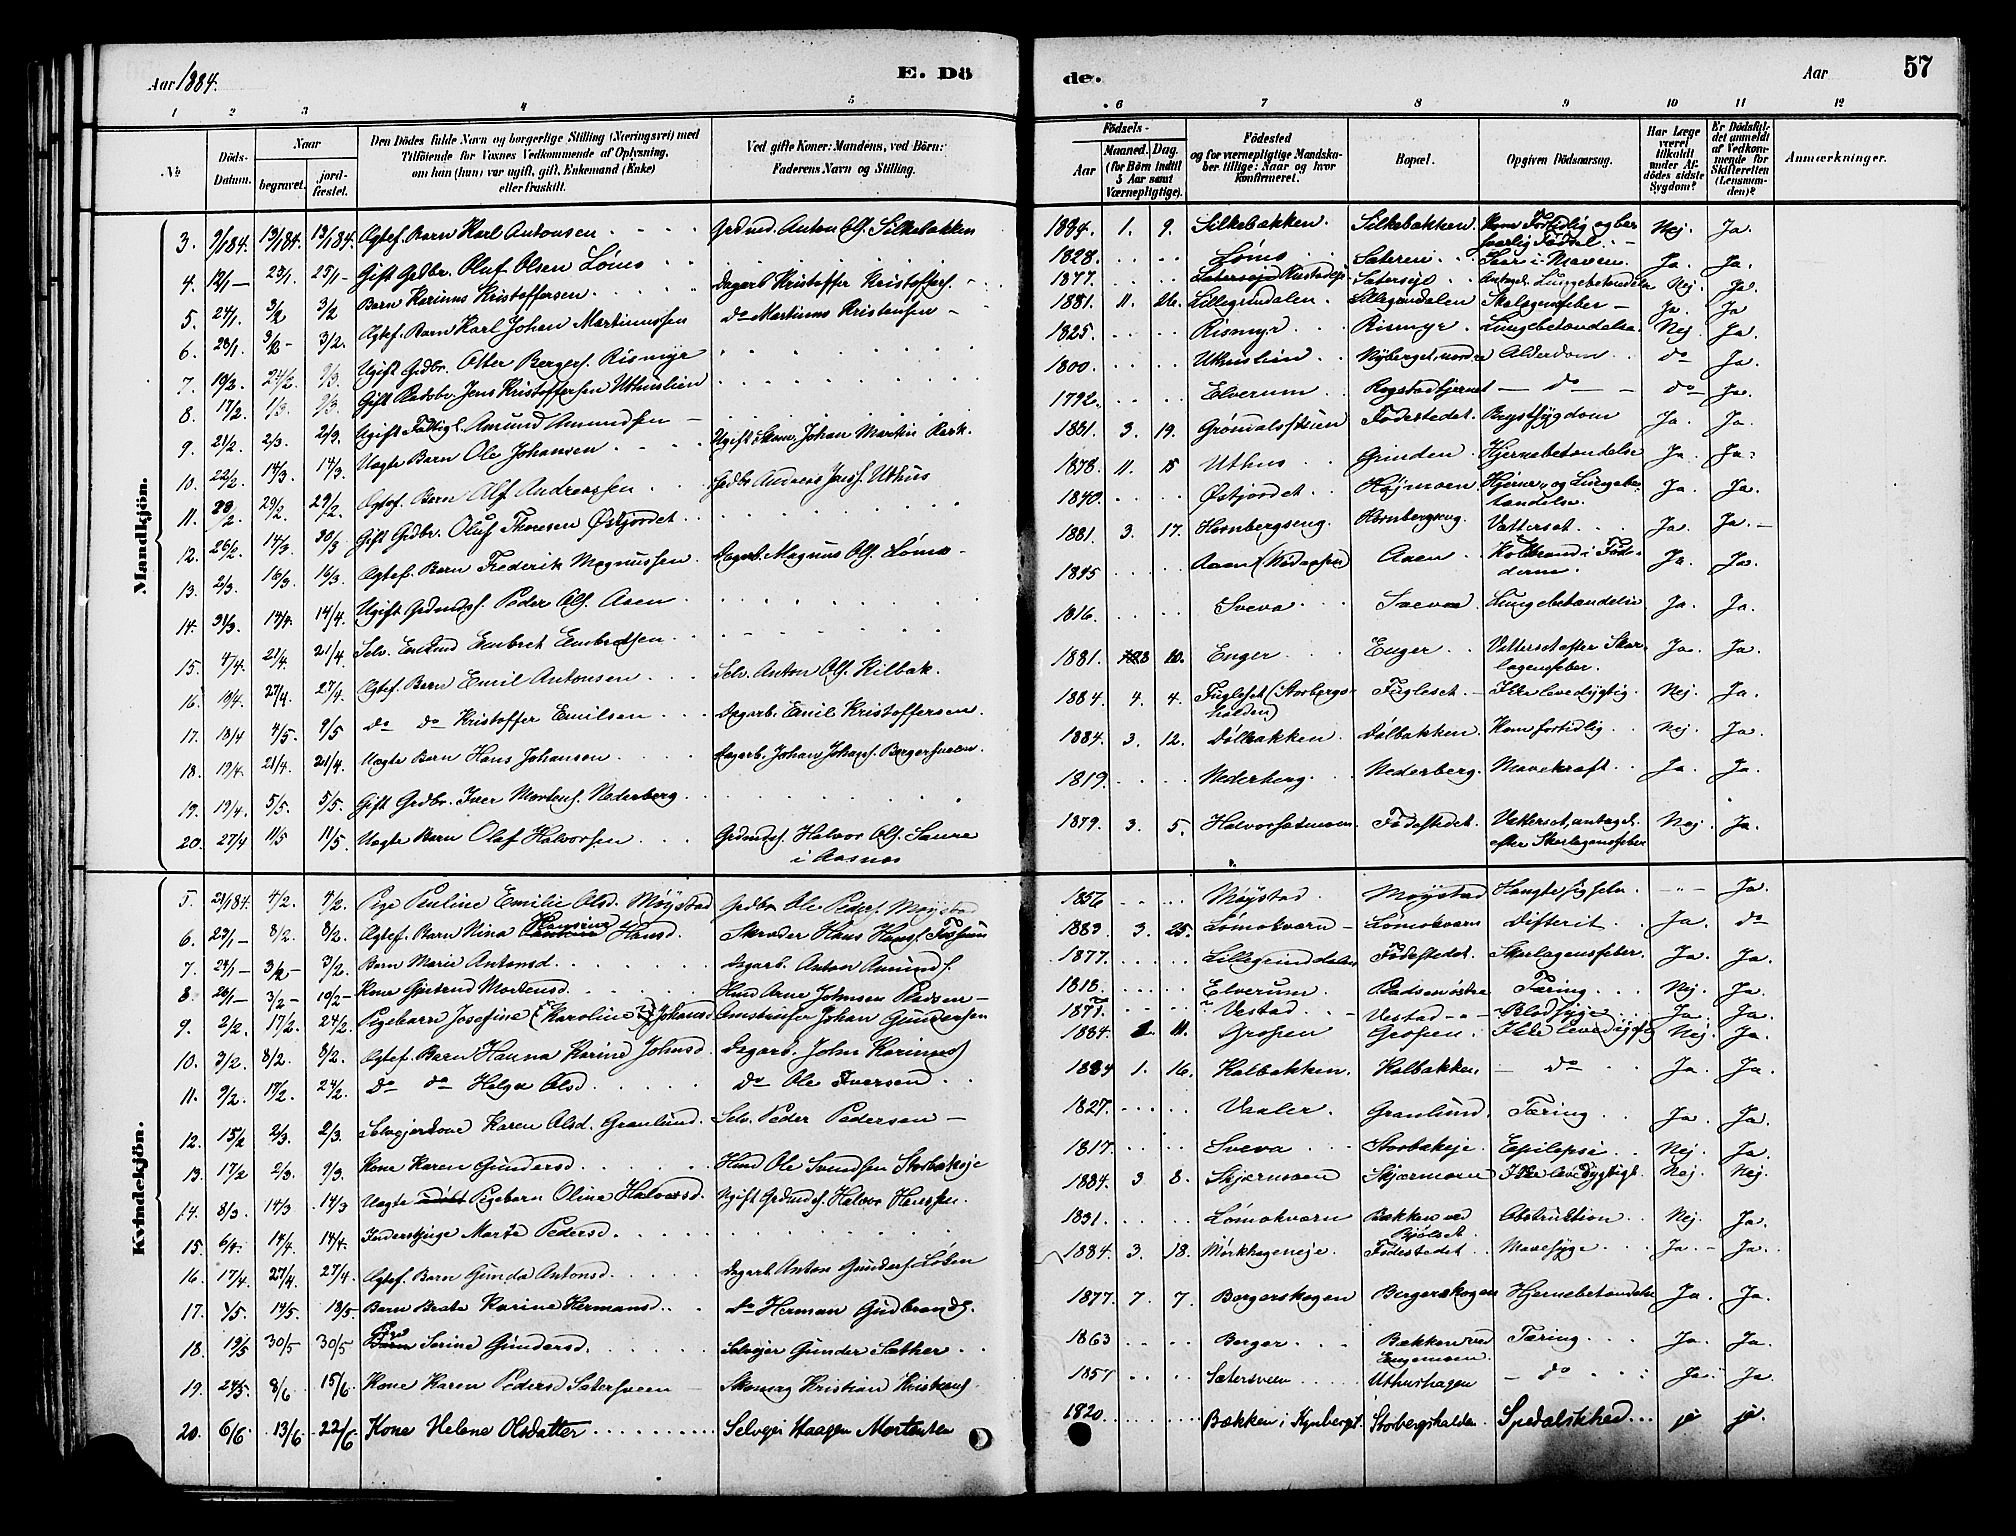 Aar 1884. E. Dö
de. Aar 57
1 2 3 4 5
6 7 8 9 10 11 12
No
Döds-Datum.
Naar
begravet. jordfæstet.
Den Dödes fulde Navn og borgerlige Stilling (Næringsvei) med
Tilföiende for Voxnes Vedkommende af Oplysning,
om han (hun) var ugift, gift, Enkemand (Enke)
eller fraskilt.
Ved gifte Koner: Mandens, ved Börn:
Faderens Navn og Stilling.
Födsels-
Aar Maaned. Dag.
(for Börn indtil 5 Aar samt Værnepligtige).
Födested
og for værnepligtige Mandskaber tillige: Naar og hvor konfirmeret.
Bopæl.
Opgiven Dödsaarsag.
Har Læge været tilkaldt under Afdödes sidste Sygdom?
Er Dödsfaldet anmeldt af Vedkommende for Skifteretten (Lensmanden)?
Anmærkninger.
Mandkjön.
3. 9/1 84. 19/1 84. 19/1 84. Ægtef. Barn Karl Antonsen Grdmd. Anton Ols. Silkebakken 1884. 1. 9. Silkebakken. Silkebakken. Kom Fortidlig og besværlig Födsel. Nej. Ja.
4. 12/1 25/1 25/1 Gift Grdbr. Oluf Olsen Lömo 1828 Lömo Sæteren Saar i Maven. Ja. Ja.
5. 24/1. 3/2 3/2 Barn Karinus Kristoffersen Dagarb. Kristoffer Kristoffers. 1877. Sæterseje Sætersejl Antagel. Lungebetændelse Nej. Ja.
6. 28/1. 3/2 3/2. Ægtef. Barn Karl Johan Martinussen do Martinus Kristensen 1881. 11. 26. Lillegrindalen. Lillegrindalen Skarlagensfeber Ja. Ja
7. 19/2. 24/2. 9/3. Ugift Grdbr. Otter Bergers. Rismyr 1825. Rismyr Rismyr Lungebetændelse Nej. Ja.
8. 17/2. 1/3. 9/3. Gift Pladsbr. Jens Kristoffersen Uthuslien 1800. Uthuslien Nyberget, nordre Alderdom do Ja.
9. 21/2 2/3. 2/3. Ugift Fattigl. Amund Amundsen 1792. Elverum Rogstadtjernet do do Ja.
10. 22/2 14/3. 14/3. Uægte Barn Ole Johansen Ugift Skom. Johan Martin Berk. 1881. 3. 19. Födestedet. Brystsygdom Ja. Ja.
11. 28/2. 29/2. 29/2. Ægtef. Barn Alf Andreassen Grdbr. Andreas Jenss. Uthus 1878. 11. 15 Uthus Grinden Hjernebetændelse Ja. Ja.
12. 26/2. 14/3. 30/3 Gift Grdbr. Oluf Thoresen Östjordet 1840. Östjordet Höjmoen Hjerne- og Lungebetændelse. Ja. Ja.
13. 2/3. 16/3. 16/3. Ægtef. Barn Frederik Magnussen Dagarb. Magnus Ols. Lömo 1881. 3. 17. Hornbergseng. Hornbergseng. Vattersot. Ja. Ja.
14. 31/3. 14/4. 14/4. Ugift Grdmds. Peder Ols. Aaen 1845 Aaen Aaen Koldbrand i Födderne. Ja. Ja.
15. 4/4. 21/4. 21/4. Selv. Enkmd Embret Embretsen 1816. Sveva Svevae Lungebetændelse Ja. Ja.
16. 19/4. 27/4. 27/4. Ægtef. Barn Emil Antonsen Selv. Anton Ols. Kilbak. 1881. 8 10. Enger Enger Vattersot efter Skarlagensfeber. Ja. Ja.
17. 18/4 4/5. 4/5 do do Kristoffer Emilsen Dagarb. Emil Kristoffersen. 1884 4. 4. Fugleset (Storbergshalden) Fugleset Ikke levedygtig. Nej. Ja.
18. 19/4. 21/4. 21/4. Uægte Barn Hans Johansen Dagarb. Johan Johans. Bergersveen. 1884. 3. 12. Dölbakken Dölbakken Kom fortidlig. Nej. Ja.
19. 19/4. 5/5. 5/5. Gift Grdbr. Iver Mortens. Nederberg 1819. Nederberg Nederberg. Mavekræft Ja. Ja.
20. 27/4 11/5 11/5. Uægte Barn Olaf Halvorsen Grdmds. Halvor Ols. Saure i Aasnes 1879. 3. 5. Halvorsætmoen Födestedet. Vattersot, antagel. efter Skarlagensfeber Nej. Ja.
Kvindekjön.
5. 21/1 84. 4/2. 4/2. Pige Pauline Emilie Olsd. Möystad Grdbr. Ole Peders. Möystad 1856 Möystad Möystad Hængte sig selv. Ja.
6. 23/1 8/2. 8/2. Ægtef. Barn Nina Hansine Hansd. Skræder Hans Hans. Fossum 1883. 3. 25. Lömokværn Lömokværn Difterit Ja. do
7. 24/1 3/2 3/2. Barn Marie Antonsd. Dagarb. Anton Amunds. 1877. Lillegrindalen Födestedet. Skarlagensfeber Ja. Ja.
8. 28/1 3/2 19/2 Kone Gjertrud Mortensd. Husm. Arne Johnsen Pladsen 1818. Elverum. Pladsen östre Tæring Nej. Ja.
9. 2/2. 17/2. 24/2. Pigebarn Josefine (Karoline ?) Johansd. Omstreifer Johan Gundersen 1871. Vestad Vestad Blodsyge Ja. Ja.
10. 3/2. 8/2. 8/2. Ægtef. Barn Hanna Karine Johnsd. Dagarb. John Karinus 1884. 2. 11. Grosen Grosen. Ikke levedygtig Nej. Ja.
11. 9/2. 17/2. 24/2. do do Helga Olsd. do Ole Iversen 1884 1. 16. Kalbakken. Kalbakken. do Ja. Ja.
12. 15/2 2/3. 2/3. Selvejerkone Karen Olsd. Granlund. Selv. Peder Pedersen 1827. Vaaler. Granlund. Tæring Ja. Ja.
13. 17/2 2/3. 9/3. Kone Karen Gundersd. Husm Ole Svendsen Storbækeje 1817. Sveva Storbækeje. Epilepsi Nej. Ja.
14. 8/3. 14/3 14/3 Uægte Pigebarn Oline Halvorsd. Ugift Grdmds. Halvor Hanssen. 1884. 3. 8. Skjærmoen Skjærmoen Ikke levedygtigt. Nej. Nej.
15. 6/4. 14/4. 14/4. Inderstpige Marte Pedersd. 1831. Lömokværn Bækken ved Bjölset. Obstruktion Nej. Ja.
16. 17/4. 27/4. 27/4. Ægtef. Barn Gunda Antonsd. Dagarb. Anton Gunders. Löken 1884. 3. 18. Mörkhageneje. Födestedet Mavesyge Ja. Ja.
17. 1/5. 14/5. 18/5. Barn Beate Karine Hermansd. do Herman Gudbrands. 1877. 7. 7. Bergerskogen Bergerskogen Hjernebetændelse Ja. Ja.
18. 19/5 30/5 30/5. Pige Serine Gundersd. Selvejer Gunder Sæther 1863 Berger Bækken ved Engemoen. Tæring Ja. Ja.
19. 24/5. 8/6 15/6 Kone Karen Pedersd Sætersveen Skomag Kristian Kristians. 1857 Sætersveen Uthushagen do Ja. Ja.
20. 6/6. 13/6. 22/6 Kone Helene Olsdatter Selvejer Haagen Mortensen 1820. Bækken i Kynberget. Storbergshalden Spedalskhed ja ja.